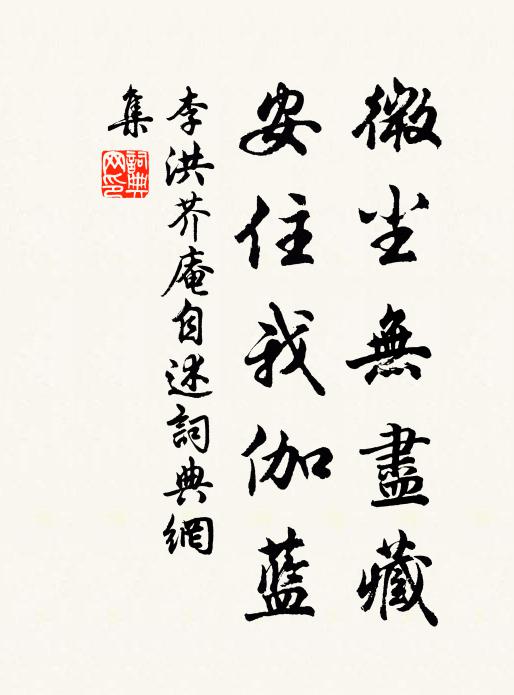 微尘無盡藏
安住我伽藍
李洪芥庵自述詞典網
集
詞典
网印